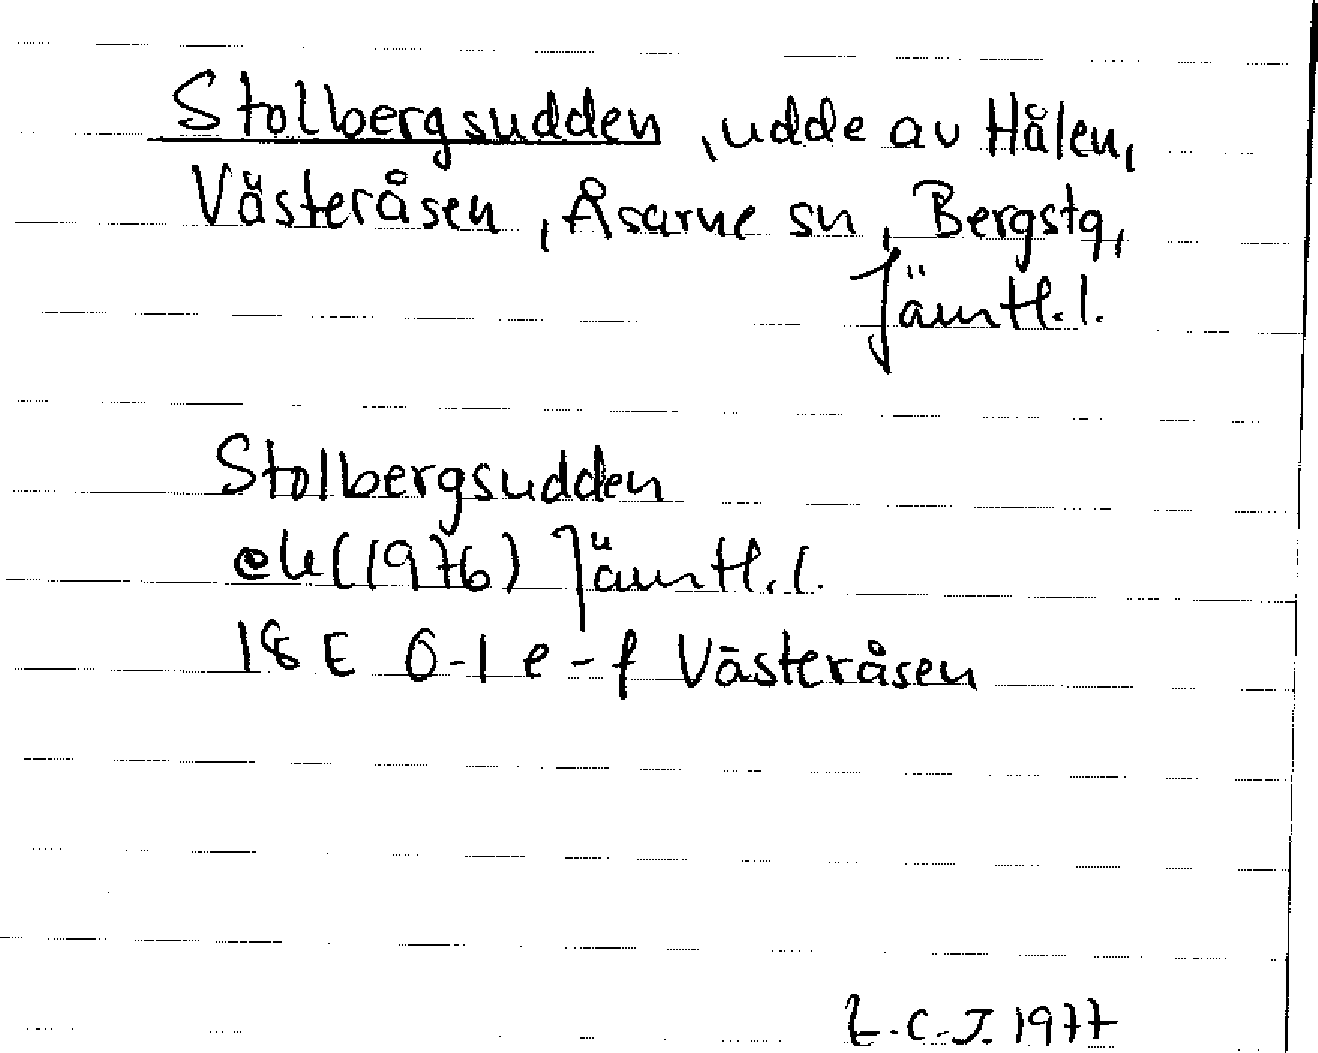 Stolbergsudden, udde av Hålen,
Västeråsen, Åsarne sn, Bergstg,
Jämtl.l.
Stolbergsudden
ek (1976) Jämtl.l.
18 E 0-1 e-f Västeråsen
E.C.J. 1977